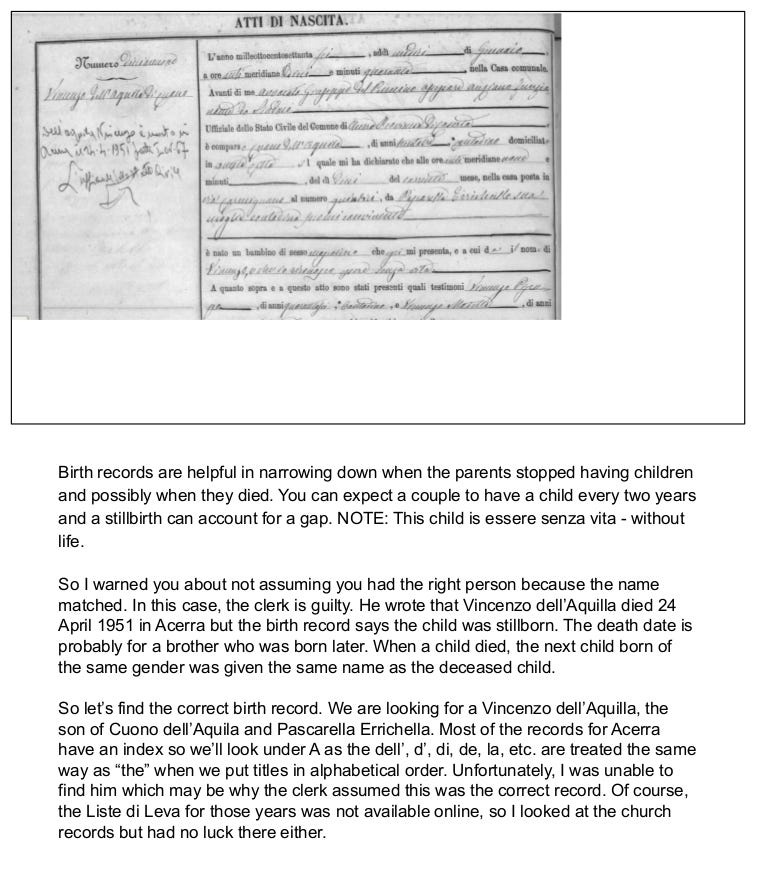 ATTI DI NASCITA.
Numero
L'anno milleottocentosettanta sei, addì undici di Gennaio,
a ore meridiane Dieci e minuti quaranta, nella Casa comunale.
Avanti di me avvocato
Uffiziale dello Stato Civile del Comune di
è comparso Cuono dell'Aquila, di anni, contadino domiciliato
in, il quale mi ha dichiarato che alle ore meridiane nove e
minuti, del dì Dieci del corrente mese, nella casa posta in
via al numero, da Pascarella Errichella sua
moglie contadina seco lui convivente
è nato un bambino di sesso mascolino che mi presenta, e a cui dà il nome di
Vincenzo, senza vita
A quanto sopra e a questo atto sono stati presenti quali testimoni Vincenzo
di anni, contadino, e Vincenzo, di anni
Birth records are helpful in narrowing down when the parents stopped having children
and possibly when they died. You can expect a couple to have a child every two years
and a stillbirth can account for a gap. NOTE: This child is essere senza vita - without
life.
So I warned you about not assuming you had the right person because the name
matched. In this case, the clerk is guilty. He wrote that Vincenzo dell'Aquilla died 24
April 1951 in Acerra but the birth record says the child was stillborn. The death date is
probably for a brother who was born later. When a child died, the next child born of
the same gender was given the same name as the deceased child.
So let's find the correct birth record. We are looking for a Vincenzo dell'Aquilla, the
son of Cuono dell'Aquila and Pascarella Errichella. Most of the records for Acerra
have an index so we'll look under A as the dell', d', di, de, la, etc. are treated the same
way as "the" when we put titles in alphabetical order. Unfortunately, I was unable to
find him which may be why the clerk assumed this was the correct record. Of course,
the Liste di Leva for those years was not available online, so I looked at the church
records but had no luck there either.